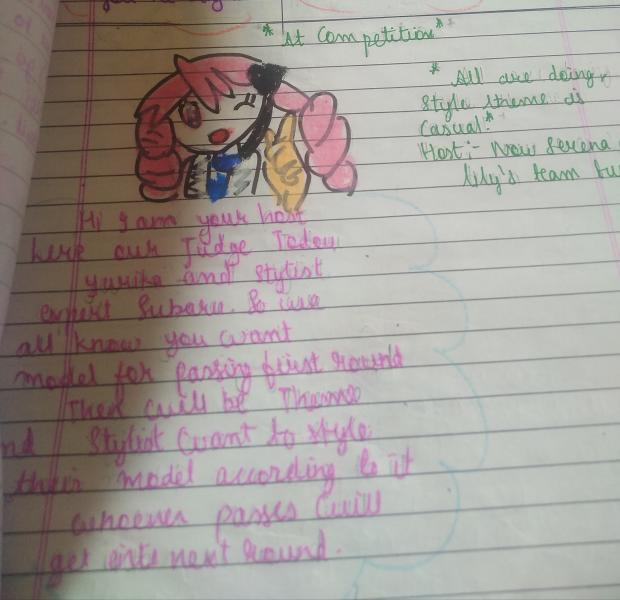 *At Competition*
* All are doing
style theme is
Casual.*
Host:- Now Serena
lily's team
Hi I am your host
here our Judge Today
yurika and stylist
expert Subaru. So
all know you want
model for passing first round
Then will be Theme
nd Stylist want to style
their model according to it
whoever passes will
get into next round.